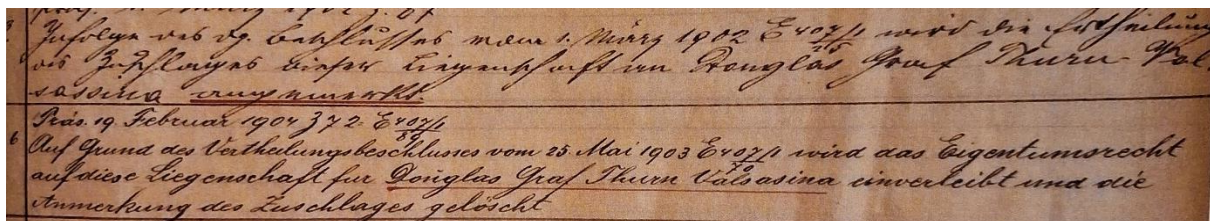 Zufolge des dg. Beschlusses vom 1. März 1902 E 407/1 wird die Ertheilung
215
des Zuschlages dieser Liegenschaft an Douglas Graf Thurn-Val-
sassina angemerkt.
Präs. 19. Februar 1904 Z 72. E 407/1
89
6 Auf Grund des Vertheilungsbeschlusses vom 25. Mai 1903 E 407/1 wird das Eigentumsrecht
70
auf diese Liegenschaft für Douglas Graf Thurn Valsasina einverleibt und die
Anmerkung des Zuschlages gelöscht